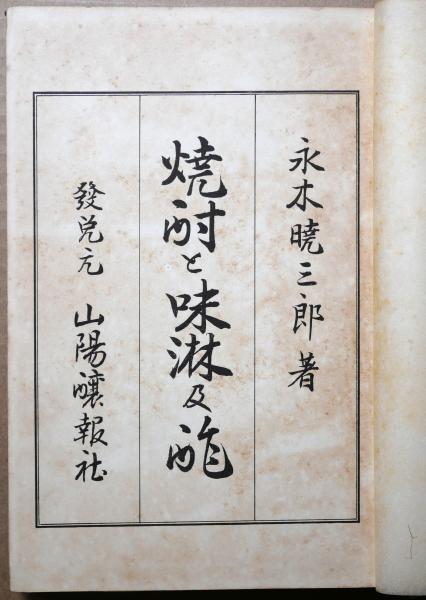 永木暁三郎著
焼酎と味淋及酢
發兌元 山陽醸報社